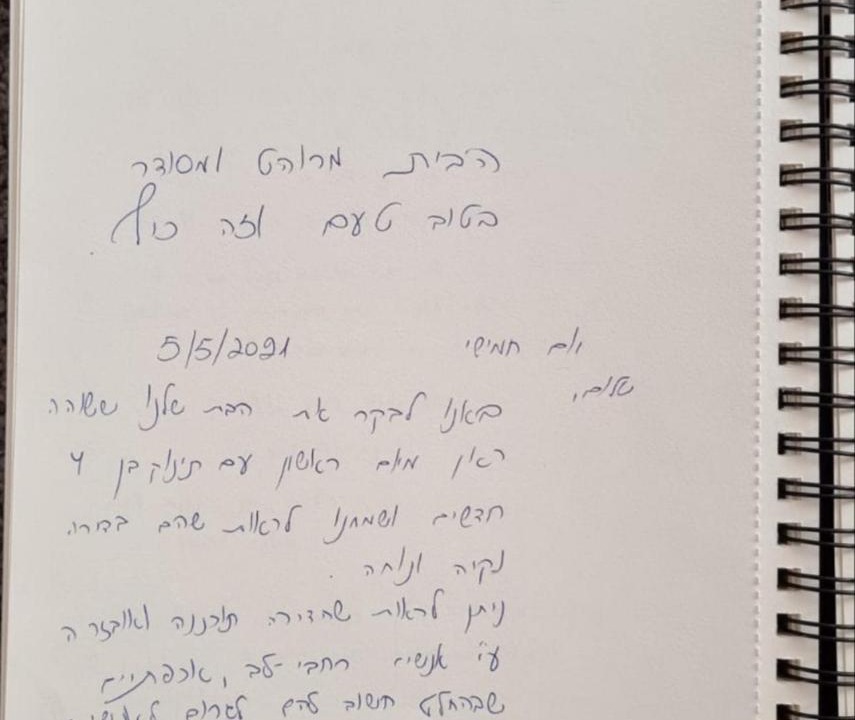 הבית מרוהט ומסודר
בטוב טעם וזה כיף
יום חמישי 5/5/2021
שלום,
באנו לבקר את הבת שלנו ששוהה
כאן מיום ראשון עם תינוק בן 4
חדשים ושמחנו לראות שהם בדירה
נקיה ונוחה.
ניתן לראות שהדירה תוכננה ואובזרה
ע״י אנשים רחבי-לב, אכפתיים
שבהחלט חשוב להם לגרום